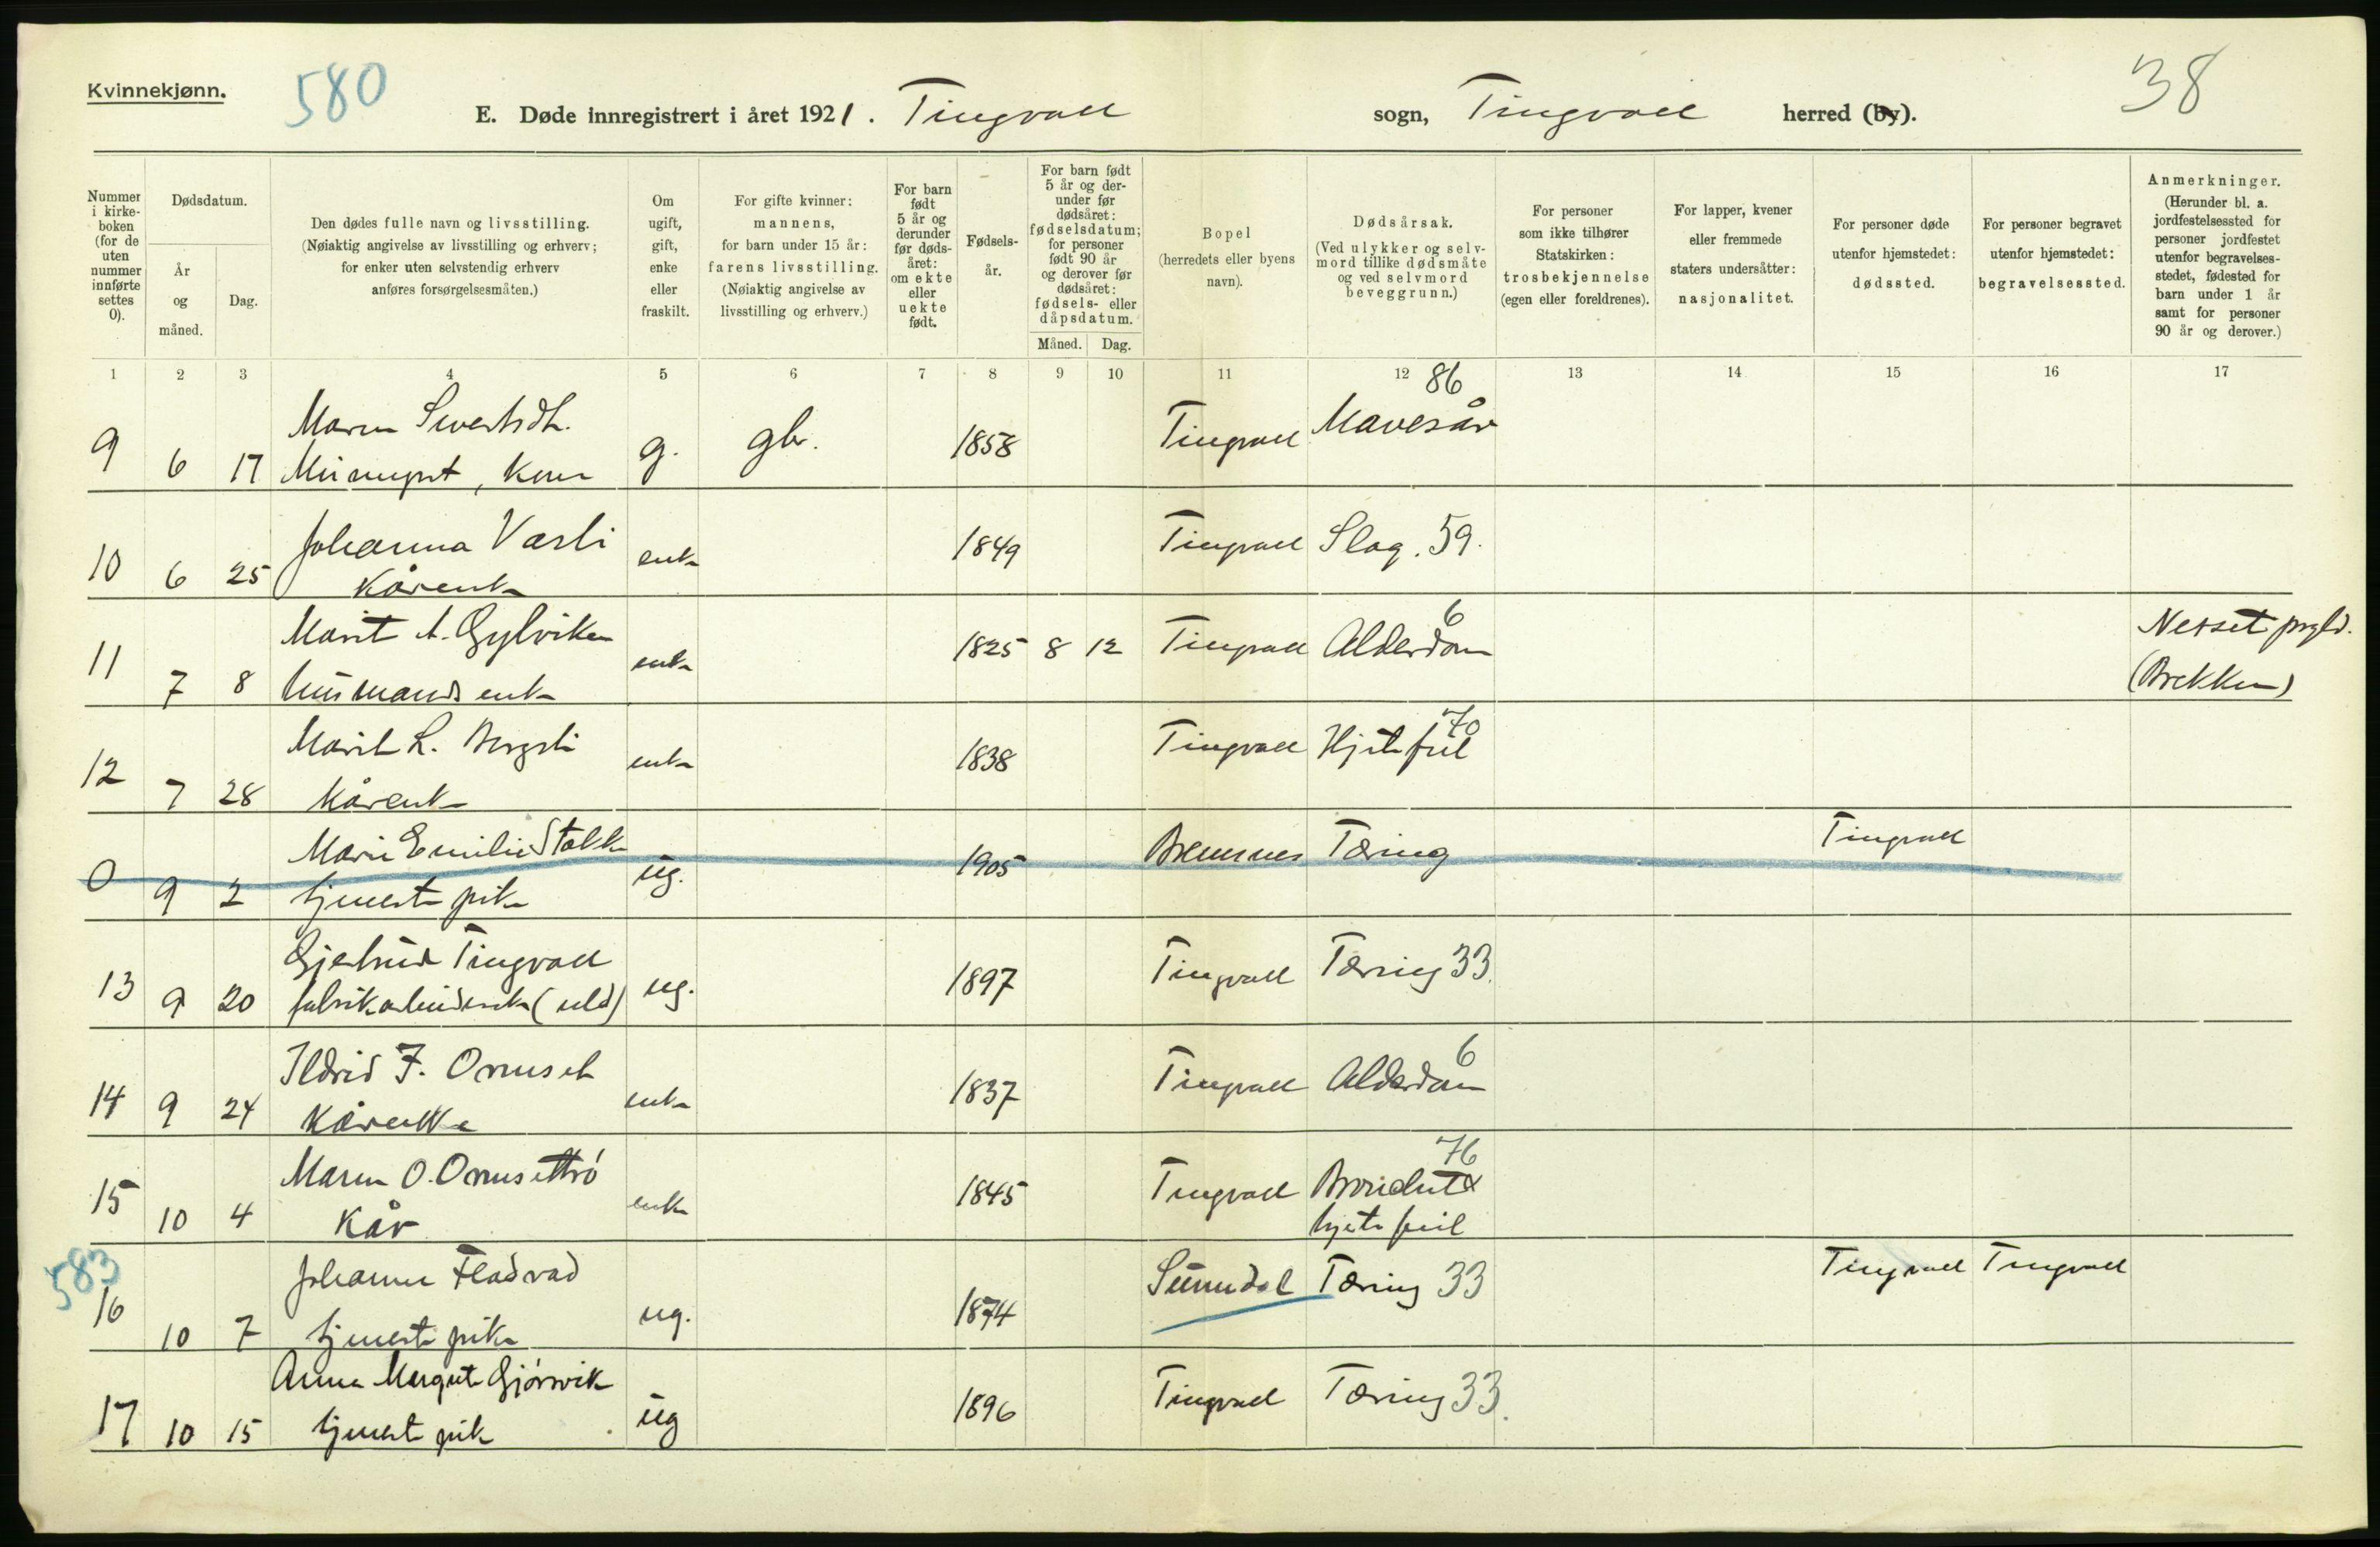 Kvinnekjønn.
580
38
E. Døde innregistrert i året 1921. Tingvoll sogn, Tingvoll herred (by).
Nummer i kirkeboken (for de uten nummer innførte settes 0).
Dødsdatum.
År og måned.
Dag.
Den dødes fulle navn og livsstilling. (Nøiaktig angivelse av livsstilling og erhverv; for enker uten selvstendig erhverv anføres forsørgelsesmåten.)
Om ugift, gift, enke eller fraskilt.
For gifte kvinner: mannens, for barn under 15 år: farens livsstilling. (Nøiaktig angivelse av livsstilling og erhverv.)
For barn født 5 år og derunder før dødsåret: om ekte eller uekte født.
Fødselsår.
For barn født 5 år og derunder før dødsåret: fødselsdatum; for personer født 90 år og derover før dødsåret: fødsels- eller dåpsdatum.
Måned. Dag.
Bopel (herredets eller byens navn).
Dødsårsak. (Ved ulykker og selvmord tillike dødsmåte og ved selvmord beveggrunn.)
For personer som ikke tilhører Statskirken: trosbekjennelse (egen eller foreldrenes).
For lapper, kvener eller fremmede staters undersåtter: nasjonalitet.
For personer døde utenfor hjemstedet: dødssted.
For personer begravet utenfor hjemstedet: begravelsessted.
Anmerkninger. (Herunder bl. a. jordfestelsessted for personer jordfestet utenfor begravelsesstedet, fødested for barn under 1 år samt for personer 90 år og derover.)
1 2 3 4 5 6 7 8 9 10 11 12 13 14 15 16 17
86
Maren Sivertsdt.
9 6 17 g. gbr. 1858 Tingvoll Mavesår
Johanna Vasli
10 6 25 enke 1849 Tingvoll Slag. 59.
Kårenke
Marit A. Gylviken 6 Nesset prgld.
11 7 8 husmands enke enke 1825 8 12 Tingvoll Alderdom (Brekken)
Marit L. Bergsli 70
12 7 28 kårenke enke 1838 Tingvoll Hjertefeil
Marie Emilie Stokke
0 9 2 tjenestepike ug. 1905 Bremsnes Tæring Tingvoll
Gjertrud Tingvoll
13 9 20 fabrikarbeiderske (uld) ug. 1897 Tingvoll Tæring 33.
Ildrid F. Ormset 6
14 9 24 Kårenke enke 1837 Tingvoll Alderdom
Maren O. Ormsettrø 76
15 10 4 Kår enke 1845 Tingvoll Bronchit &
hjertefeil
583
Johanne Fladvad
16 10 7 tjenestepike ug. 1874 Sunndal Tæring 33 Tingvoll Tingvoll
Anna Margrete Gjørsvik
17 10 15 tjenestepike ug 1896 Tingvoll Tæring 33.